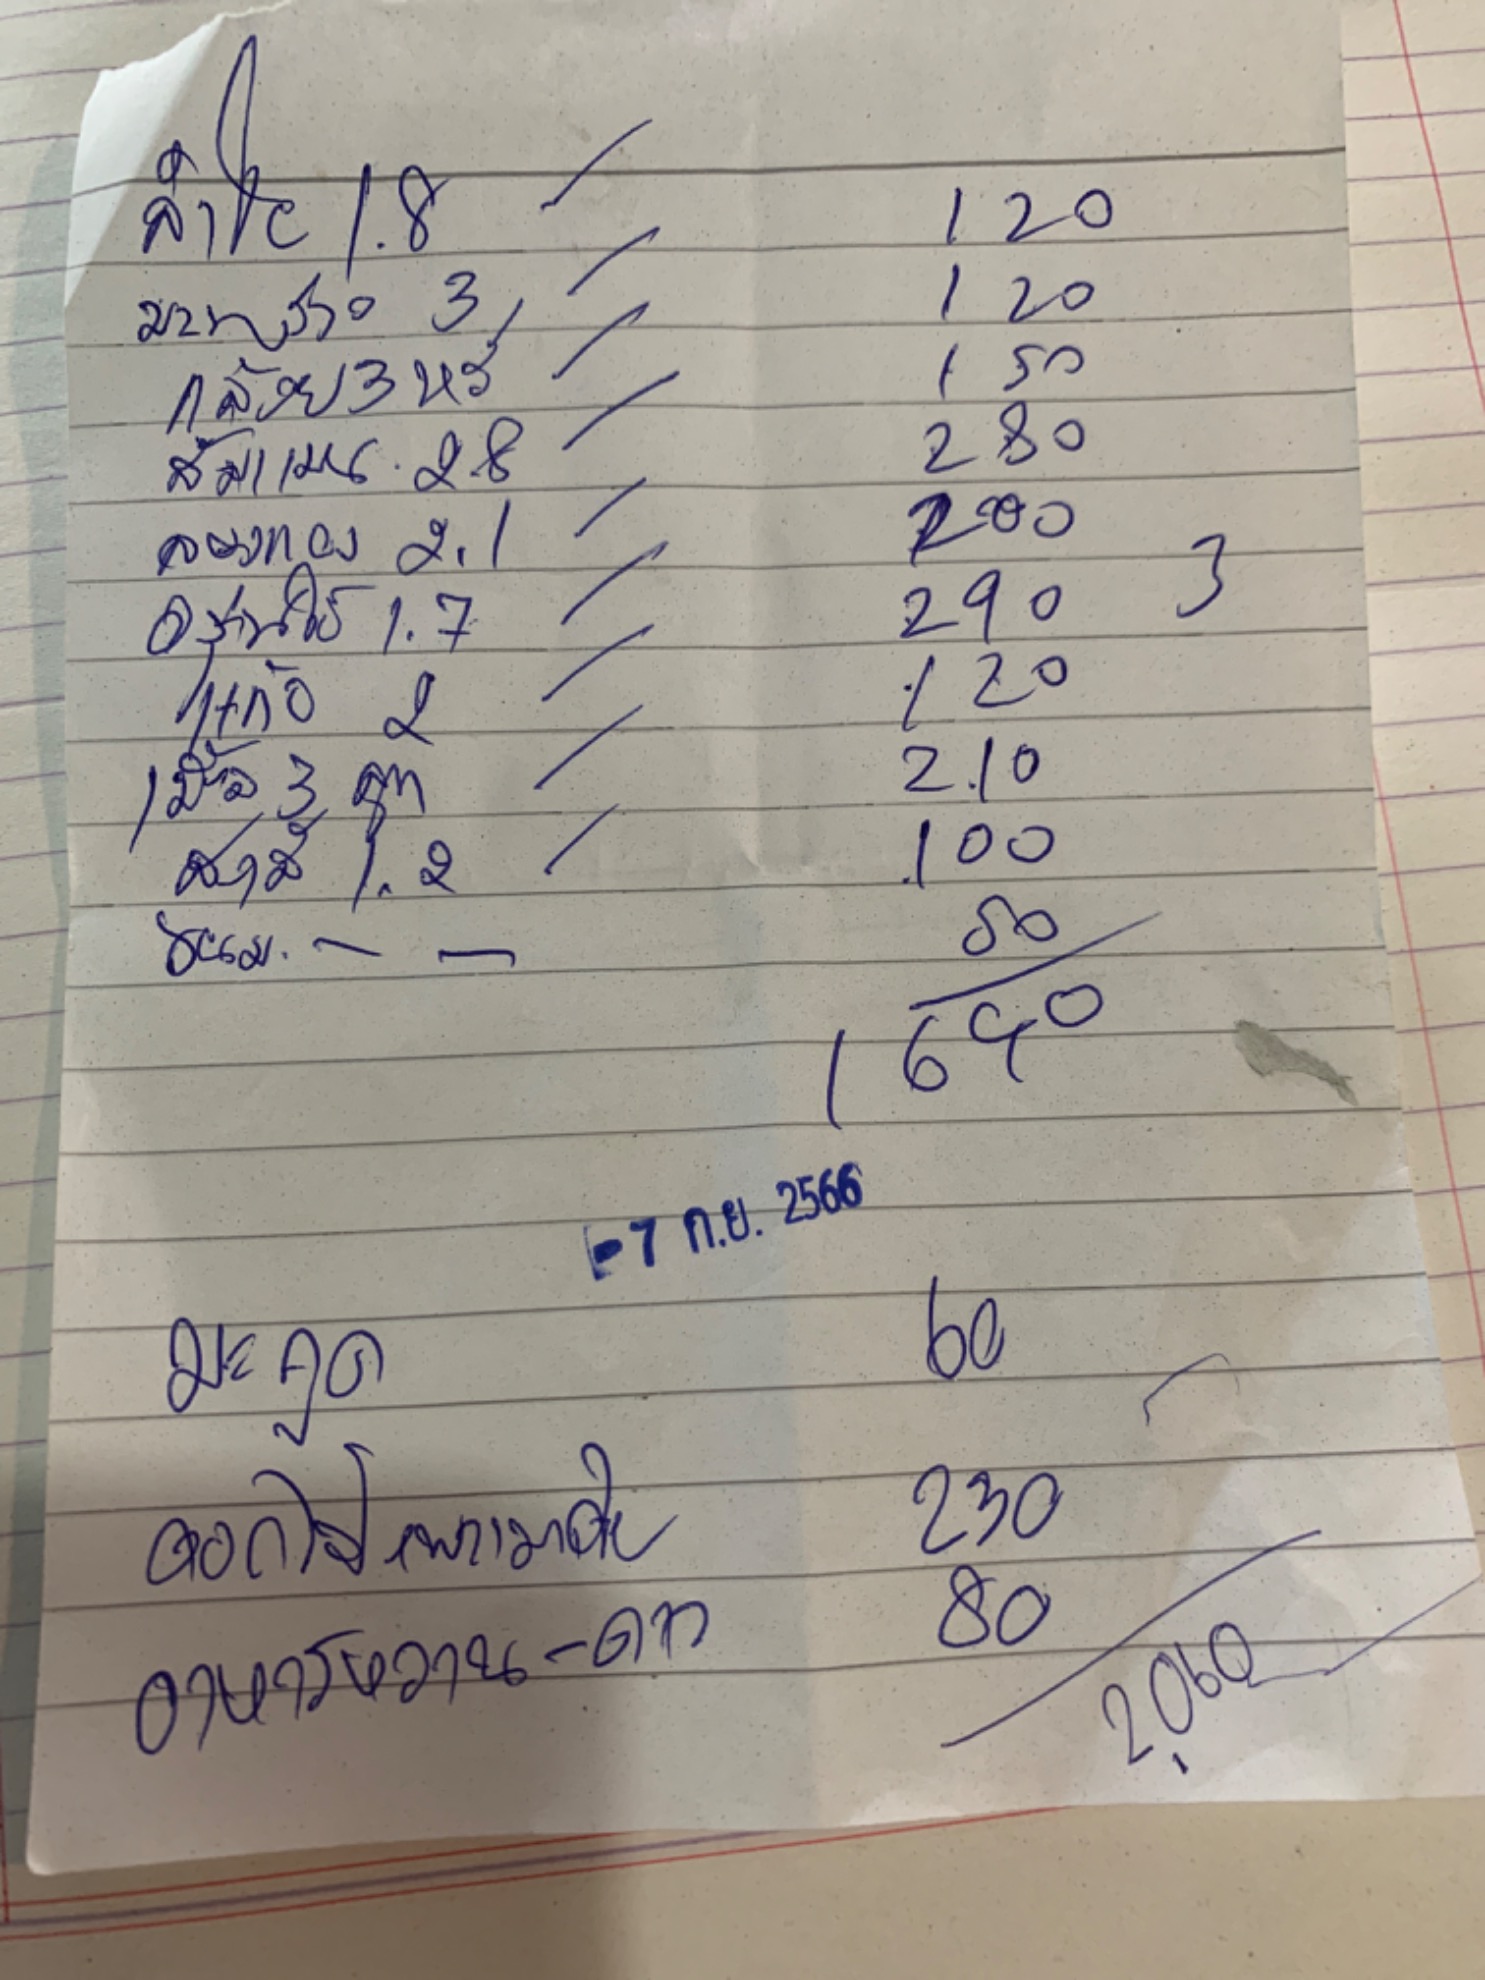 ลำไย 1.8 120
มะพร้าว 3 120
กล้วย 3 หวี 150
ส้มแมน. 2.8 280
ละงทอง 2.1 200
องุ่นไร้ 1.7 290 3
แก้ว 2 120
3 ลูก 210
สาลี่ 1.2 100
ขนม. - - 50
1690
-7 ก.ย. 2566
มะกูด 60
ดอกไม้ พวงมาลัย 230
อาหารหวาน-คาว 80
2,060